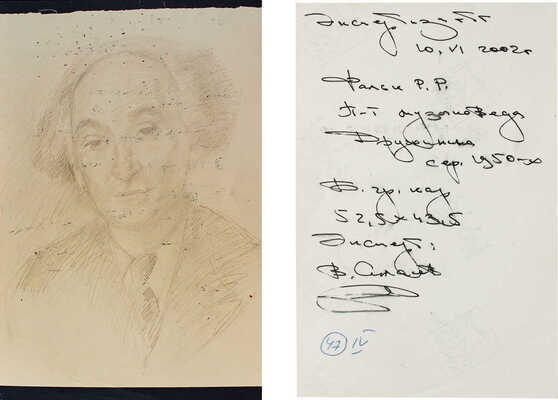 Экспертиза
10.VI 2002г
Фальк Р.Р.
П-т музыковеда
Дружинина
сер. 1950-х
Б. гр. кар
52,5 х 43,5
Эксперт:
В.
47 IV